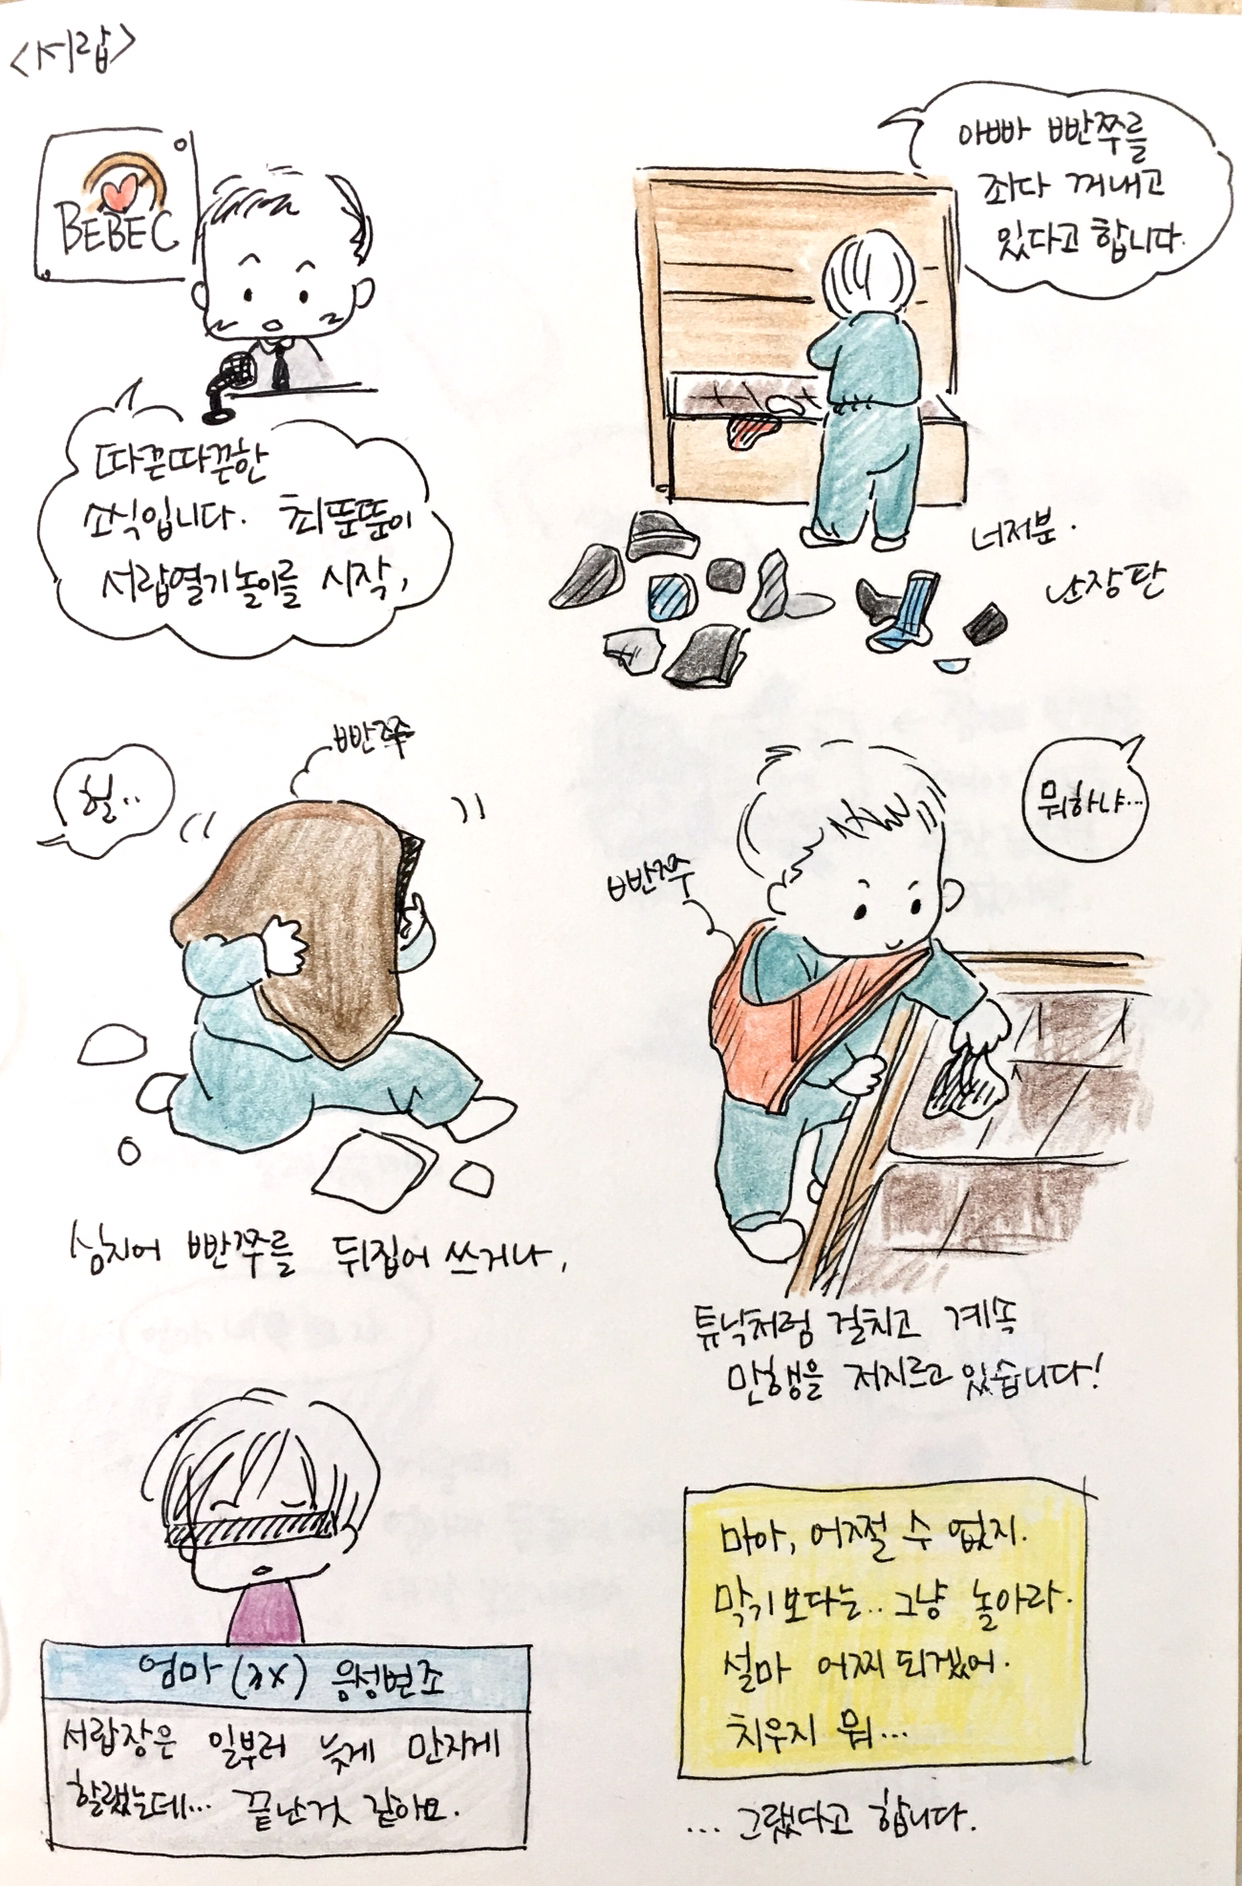 <서랍>
BEBEC
따끈따끈한
소식입니다. 최뚠뚠이
서랍열기놀이를 시작,
아빠 빤쭈를
죄다 꺼내고
있다고 합니다.
너저분.
난장판
헐..
빤쭈
심지어 빤쭈를 뒤집어 쓰거나,
뭐하냐...
빤쭈
튜닉처럼 걸치고 계속
만행을 저지르고 있습니다!
엄마(3X) 음성변조
서랍장은 일부러 늦게 만지게
할랬는데... 끝난것 같아요.
마아, 어쩔 수 없지.
막기보다는.. 그냥 놀아라.
설마 어찌 되겠어.
치우지 뭐...
... 그랬다고 합니다.